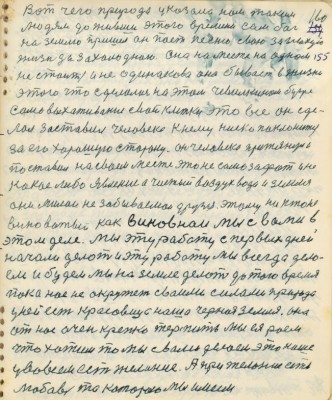 Вот чего природа указала нам таким 160
людям до живши этого времня сам бог
на землю пришел он поет песню свою за земную
жизнь да за холодною. Она на месте на одном 155
не стоит и не одинакова она бывает в жизни
этого что сделалось на этом
само выхативание свой клятки это все он сде-
лал заставил человека к нему низко поклонится
за его хорошую сторону. он человека притянул и
поставил на своем месте это не само зафат и не
какое либо явление а чистый воздух вода и земля
они милаи не забываемаи друзя этому ни кто не
виноватый как виновнаи мы с вами в
этом деле. Мы эту работу с первых дней
начали делат и эту работу мы всегда дела-
ем и будем мы на земле делат до того время
пока нас не окружет своими силами природа
у ней ест красавица наша черная земля. она
от нас очен крепко терпит мы ея роем
что хотим то мы с вами делаем это наше
у во всем ест желание. А при желании есть
любовь та которою мы имеем